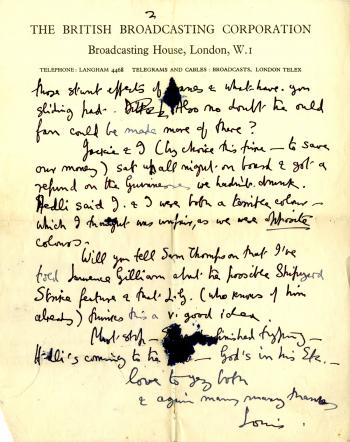 2
THE BRITISH BROADCASTING CORPORATION
Broadcasting House, London, W.1
TELEPHONE: LANGHAM 4468 TELEGRAMS AND CABLES: BROADCASTS, LONDON TELEX
those stunt effects of & what-have-you
sliding past. Also no doubt the ould
fan could be made more of there?
Jackie & I (by choice this time — to save
our money) sat up all night on board & got a
refund on the Guinnesses we hadn't drunk.
Hedli said J. & I were both a terrible colour —
which I thought was unfair, as we were opposite
colours.
Will you tell Sam Thompson that I've
told Laurence Gilliam about the possible Shipyard
Strike feature & that L.G. (who knows of him
already) thinks this a v. good idea.
Must stop — finished typing —
Hedli's coming to the — God's in his
love to you both
& again many many thanks
Louis.